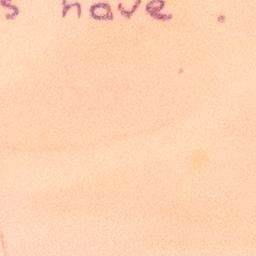 s have .